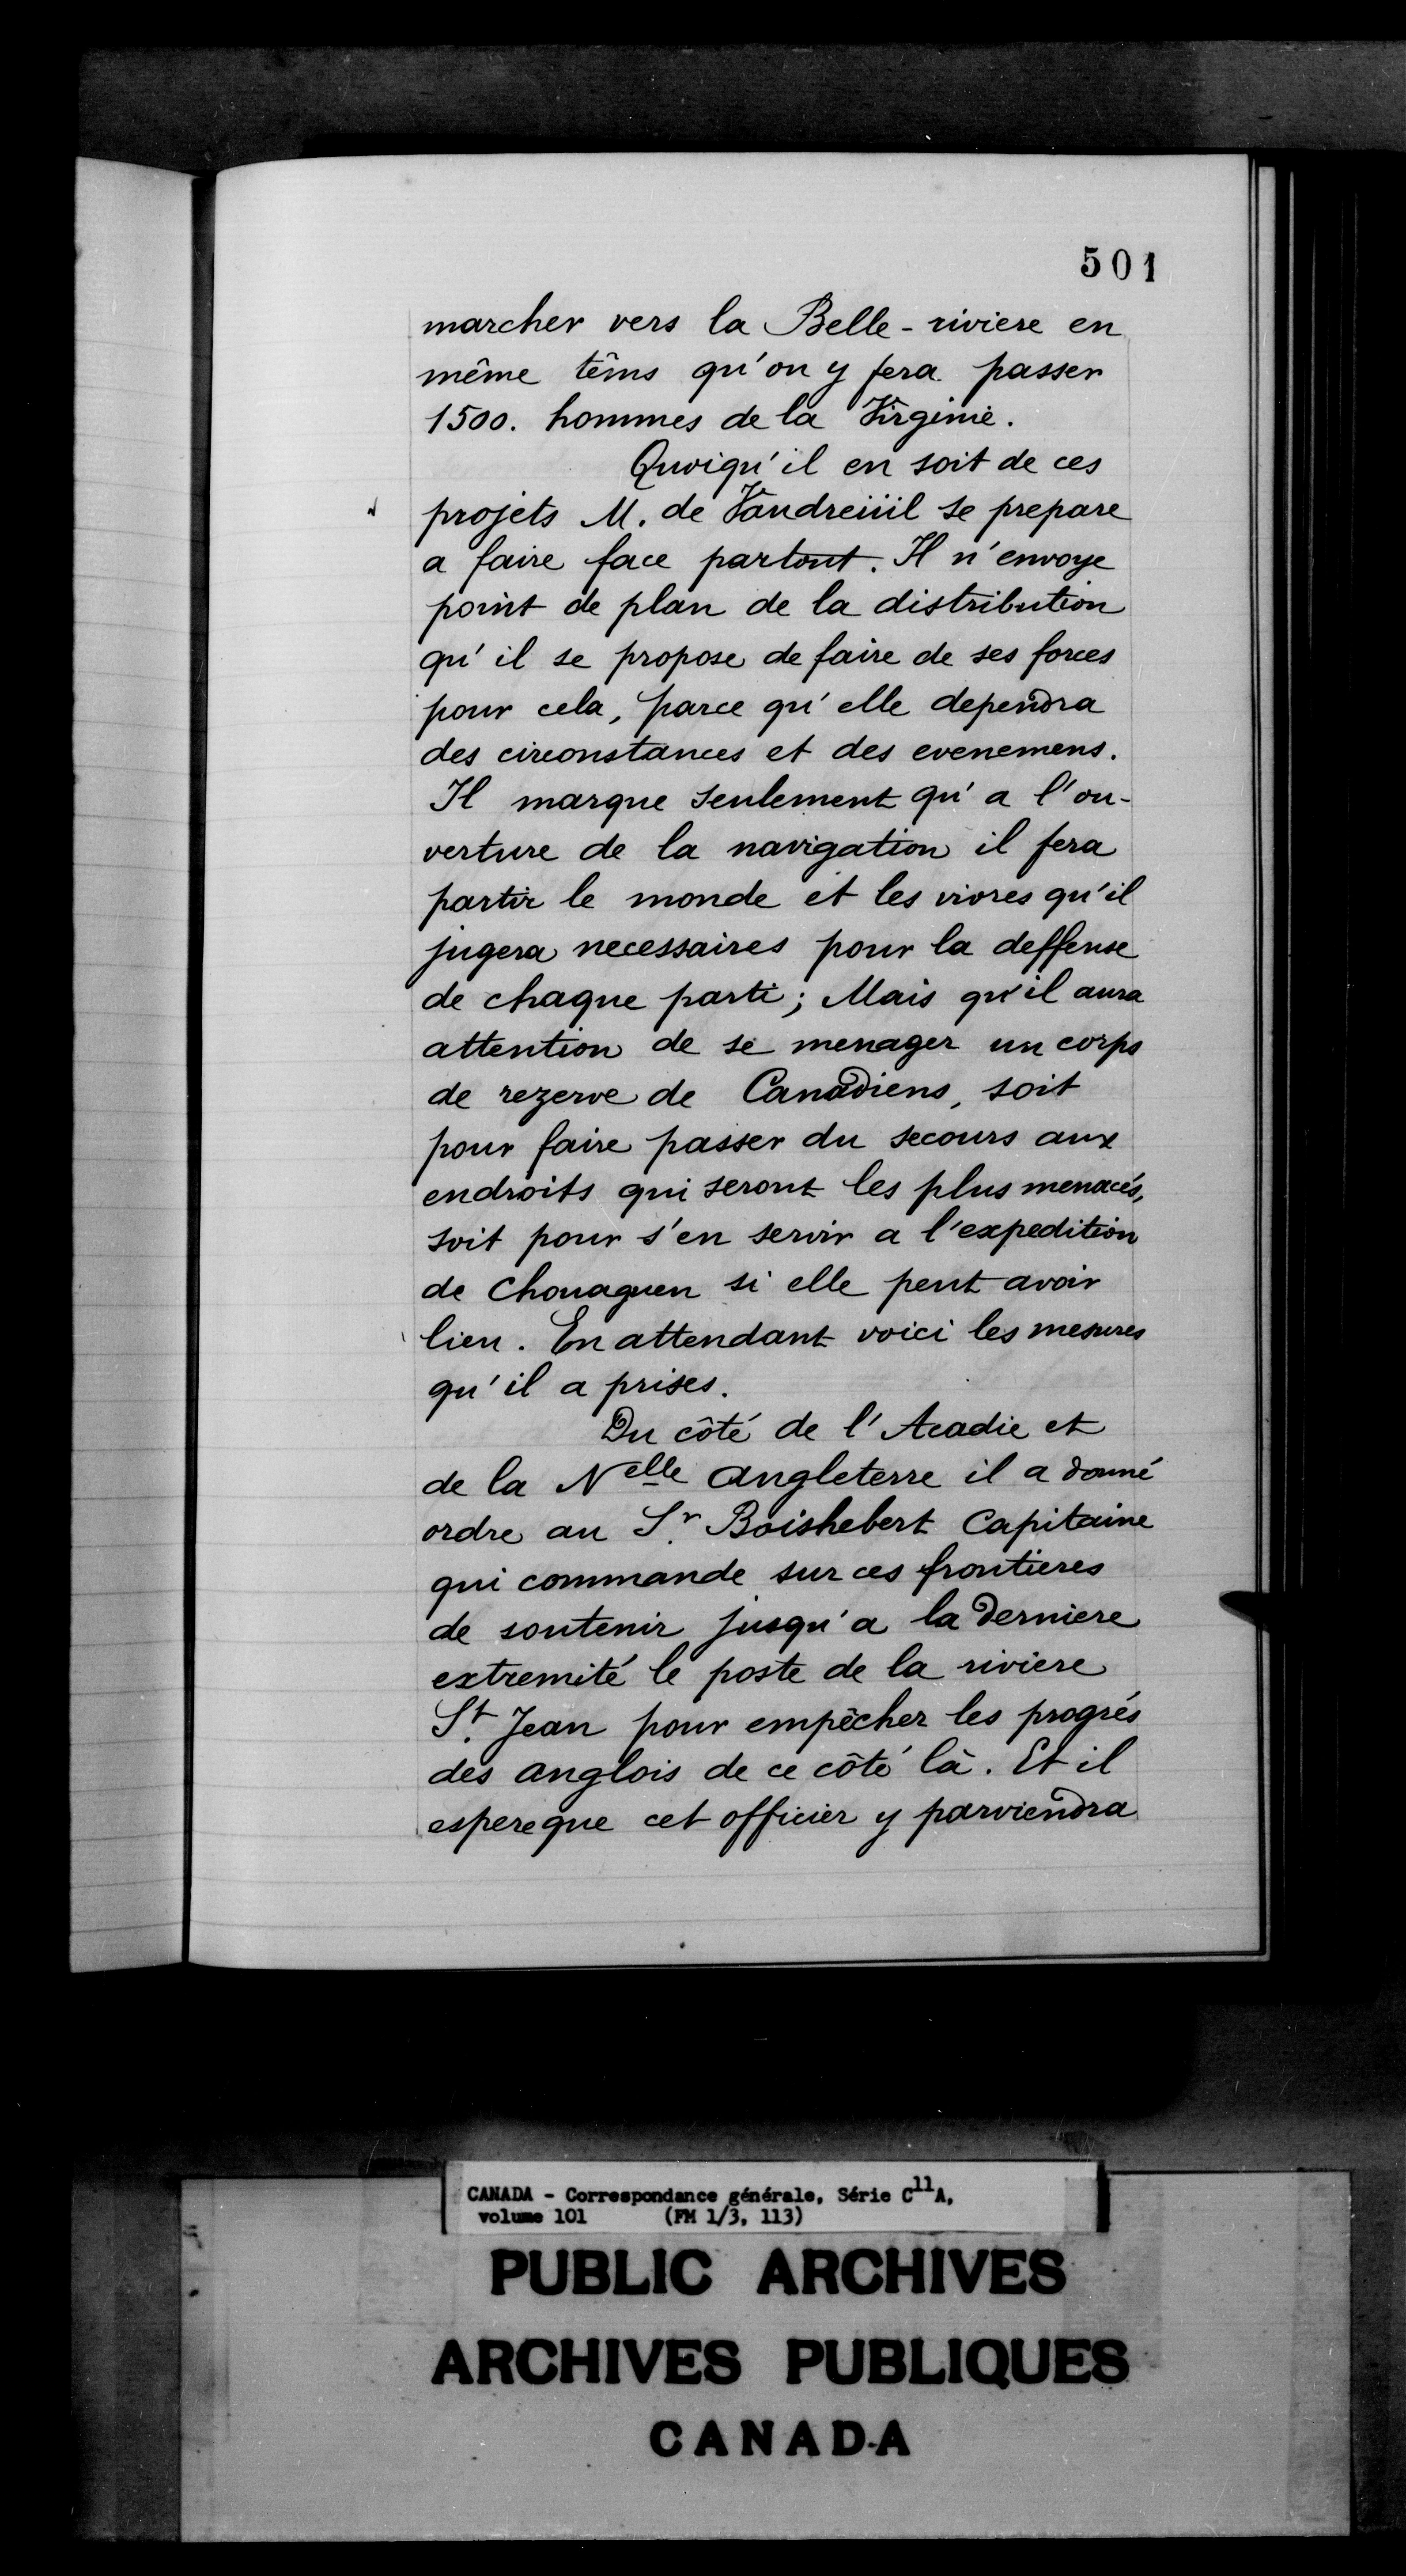 501
marcher vers la Belle-riviere en
même têms qu'on y fera passer
1500. hommes de la Virginie.
Quoiqu'il en soit de ces
projets M. de Vaudreüil se prepare
a faire face partout. Il n'envoye
point de plan de la distribution
qu'il se propose de faire de ses forces
pour cela, parce qu'elle dependra
des circonstances et des evenemens.
Il marque seulement qu'a l'ou-
verture de la navigation il fera
partir le monde et les vivres qu'il
jugera necessaires pour la deffense
de chaque parti; Mais qu'il aura
attention de se menager un corps
de rezerve de Canadiens, soit
pour faire passer du secours aux
endroits qui seront les plus menacés,
soit pour s'en servir a l'expedition
de Chouaguen si elle peut avoir
lieu. En attendant voici les mesures
qu'il a prises.
Du côté de l'Acadie et
de la Nelle Angleterre il a donné
ordre au Sr. Boishebert Capitaine
qui commande sur ces frontieres
de soutenir jusqu'a la derniere
extremité le poste de la riviere
St. Jean pour empêcher les progrés
des anglois de ce côté là. Et il
espere que cet officier y parviendra
CANADA - Correspondance générale, Série C11A,
volume 101 (FM 1/3, 113)
PUBLIC ARCHIVES
ARCHIVES PUBLIQUES
CANADA